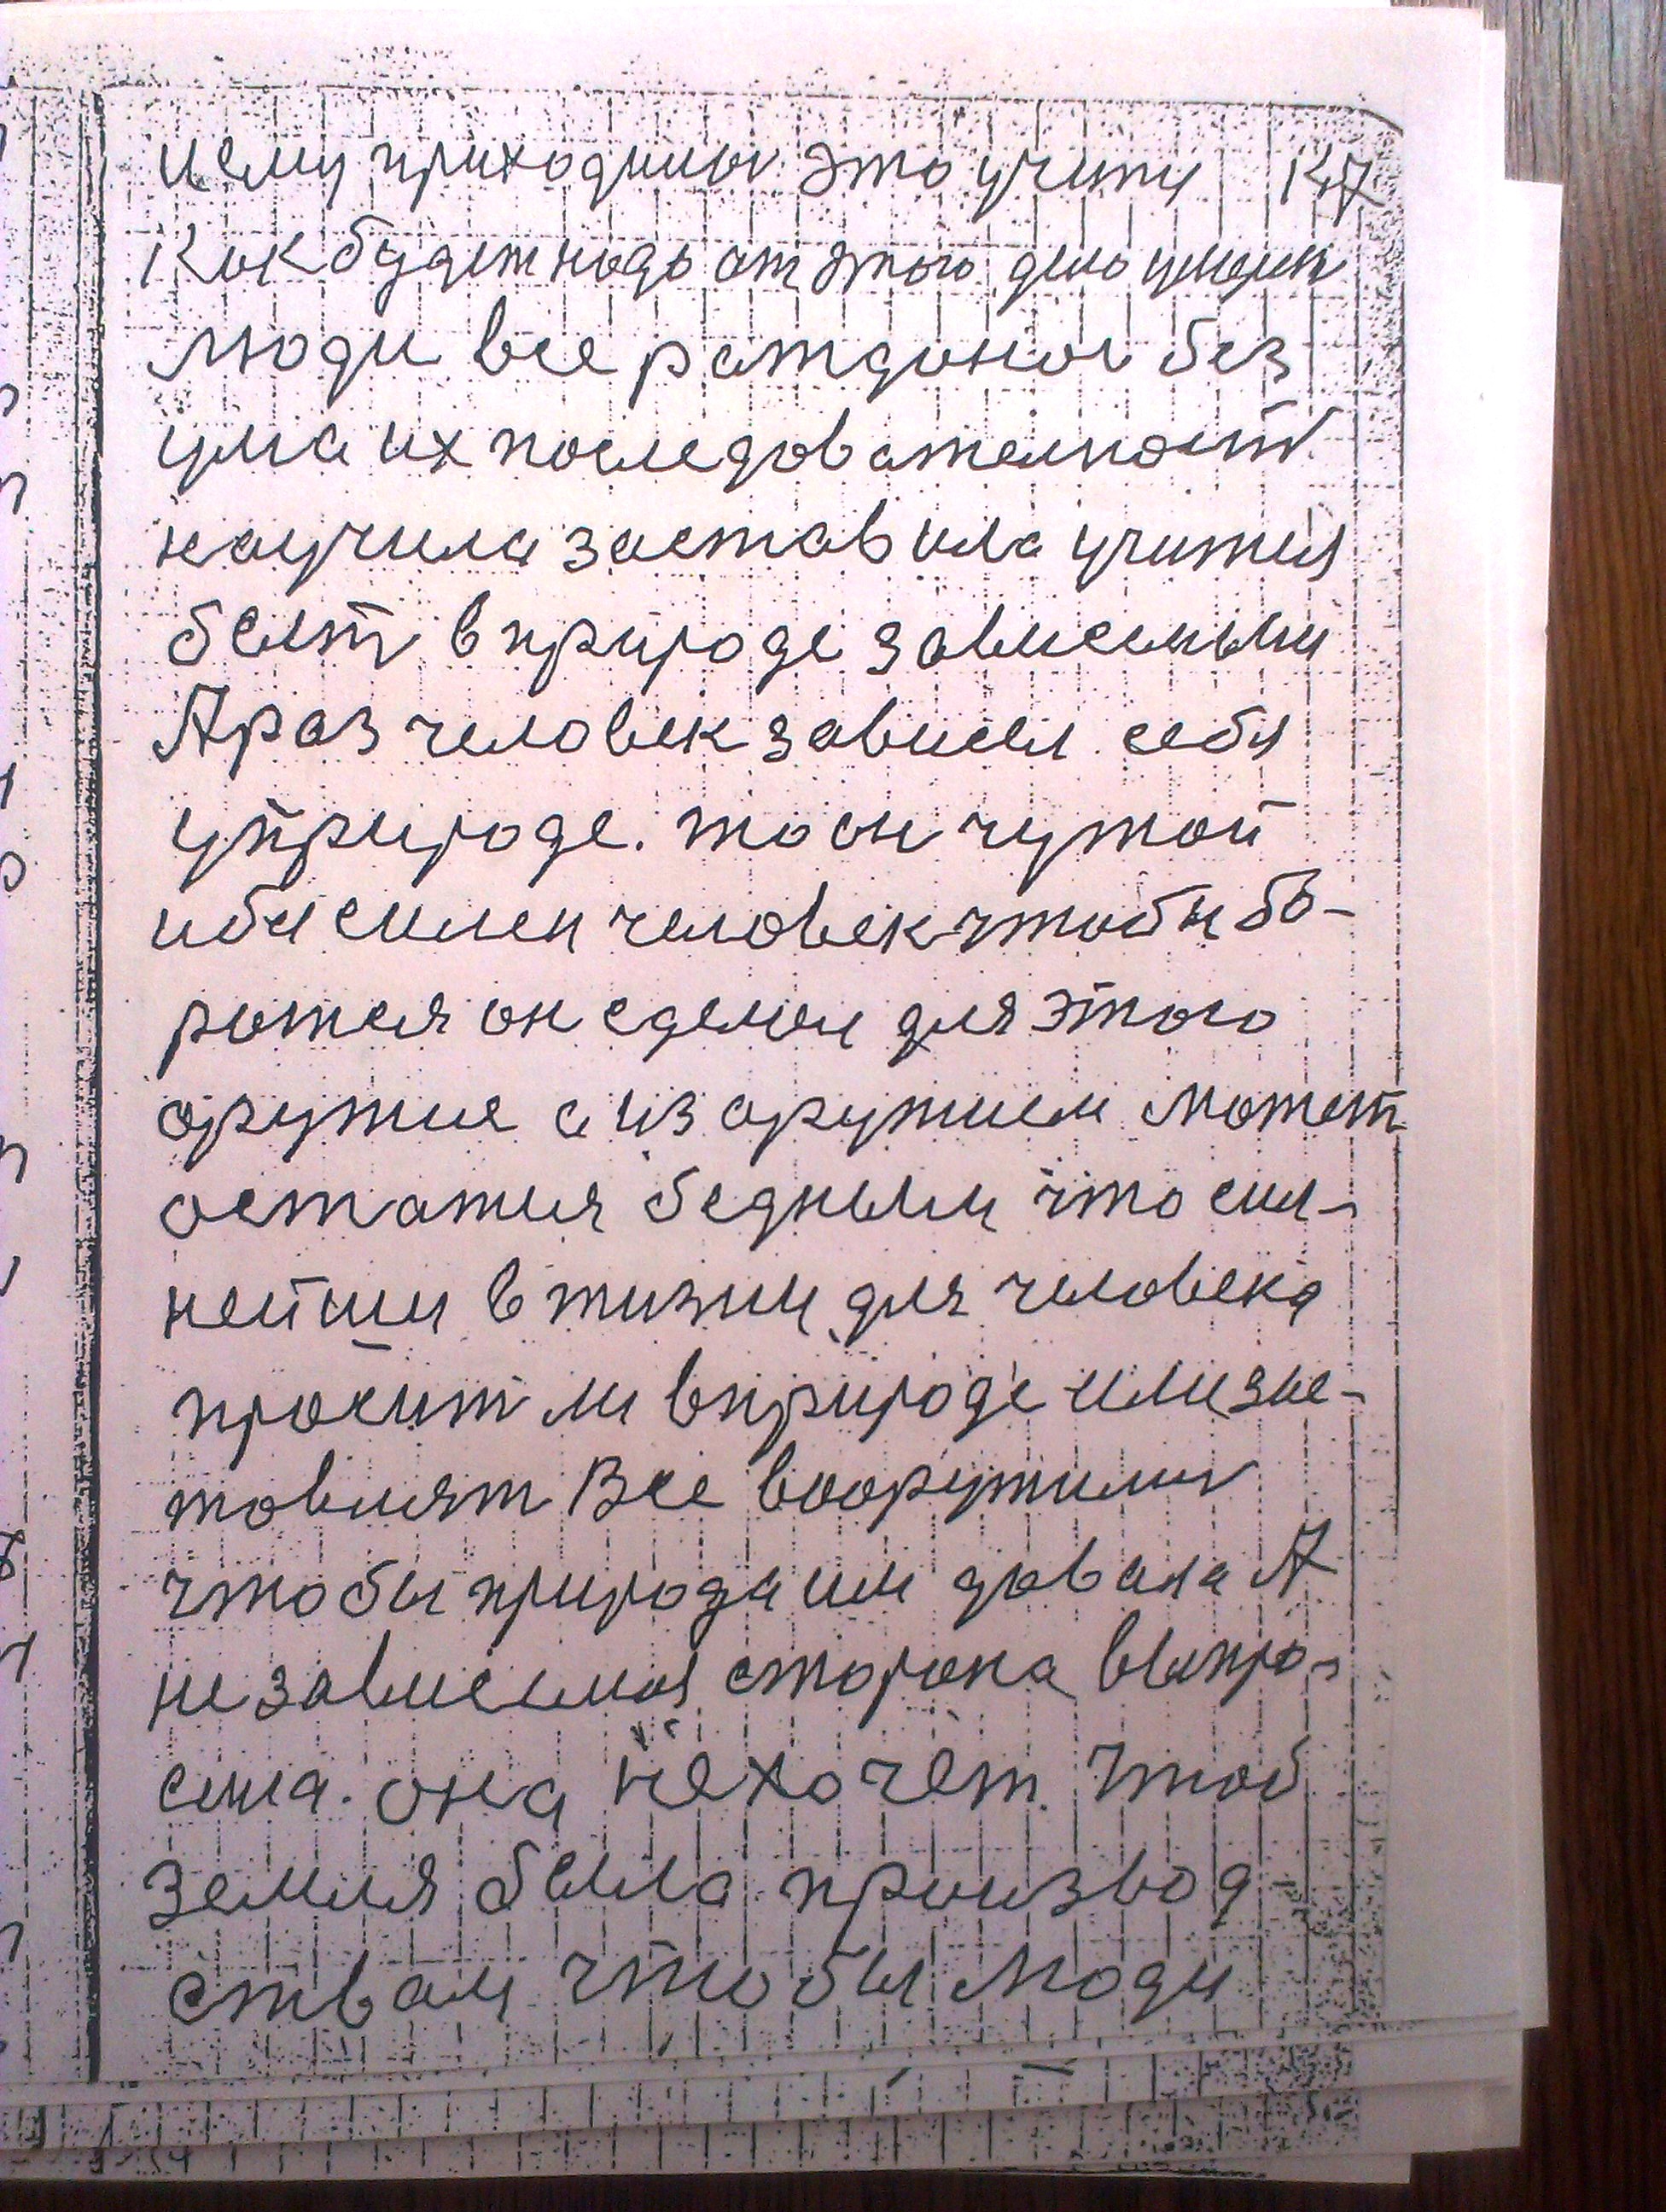 ему приходилось это учити 147
Как будет надо от этого дела
люди все рождались без
ума их последователност
научила заставила учится
быт в природе зависемым
А раз человек зависел себя
у природе. то он чужой
и бессилен человек чтобы бо-
ротся он сделал для этого
оружие а из оружием может
остатся бедным что сил-
нейши в жизни для человека
просит ли в природе или зас-
товляят Все вооружились
чтобы природа им давала А
не зависемая сторона выпро-
сила. она не хочет. Чтоб
земля была производ-
ствам чтобы люди